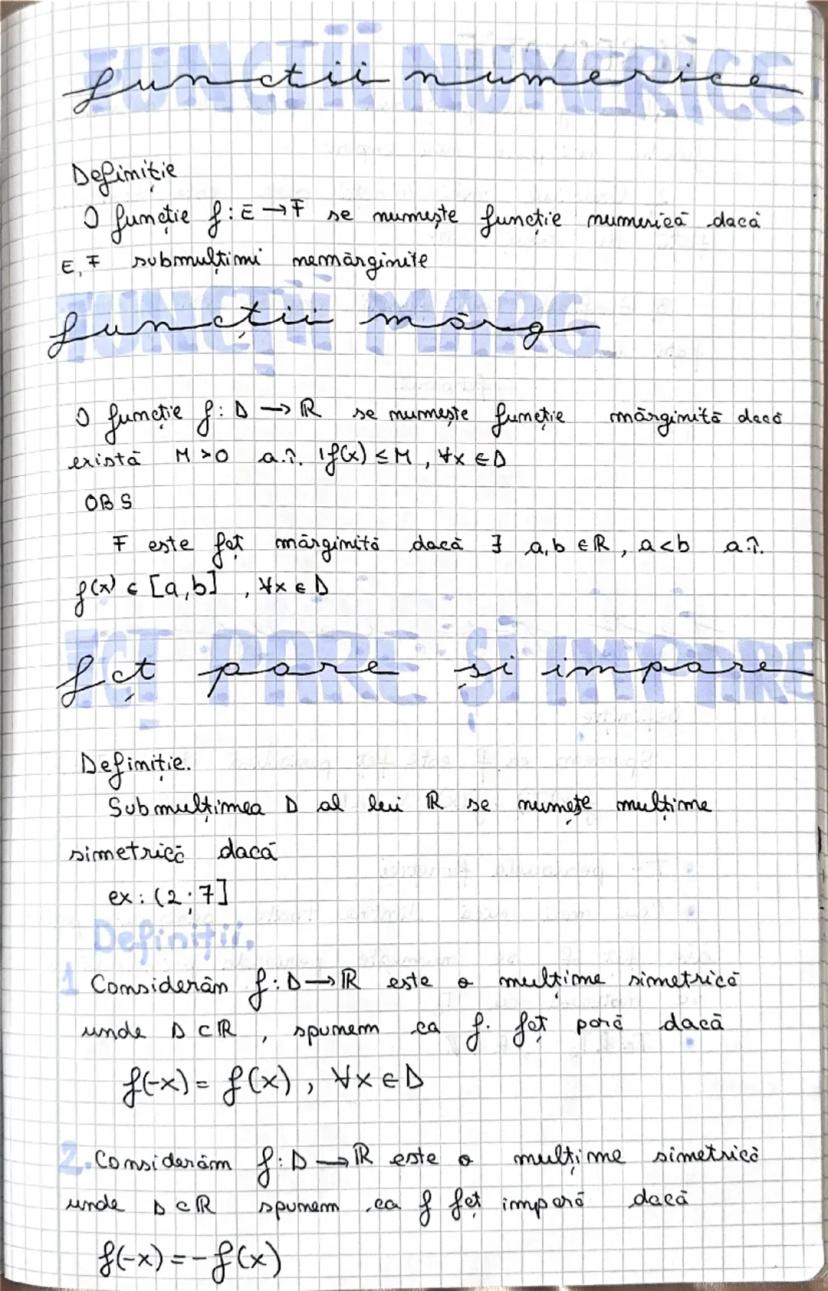 functii numerice
Definiție
O funcție f: E → F se numește funcție numerică dacă
E, F submulțimi nemărginite
funcții mărg
O funcție f: D → ℝ se numește funcție mărginită dacă
există M>0 a.î. |f(x) ≤ M, ∀x ∈ D
OBS
F este fcț mărginită dacă ∃ a,b ∈ ℝ, a<b a.î.
f(x) ∈ [a,b], ∀x ∈ D
fcț pare și impare
Definiție.
Submulțimea D al lui ℝ se numește mulțime
simetrică dacă
ex: (2;7]
Definiții.
1 Considerăm f: D → ℝ este o mulțime simetrică
unde D ⊂ ℝ, spunem ca f. fcț pară dacă
f(-x) = f(x), ∀x ∈ D
2. Considerăm f: D → ℝ este o mulțime simetrică
unde D ⊂ ℝ spunem ca f fcț impară dacă
f(-x) = -f(x)